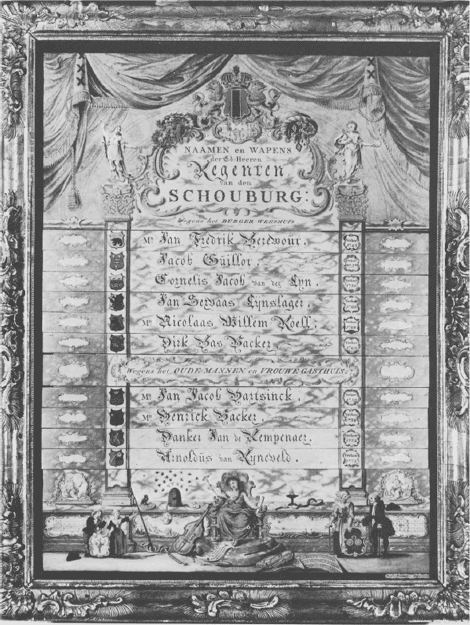 NAAMEN en WAPENS
der Ed: Heeren
Regenten
van den
SCHOUBURG:
Wegens het BURGER WEESHUIS
Mr Jan Fredrik Berewout.
Jacob Güillot.
Cornelis Jacob van der Lyn.
Jan Servaas Lynslager.
Mr Nicolaas Willem Roell:
Dirk Bas Backer
Wegens het OUDE-MANNEN en VROUWE GASTHUIS.
Mr Jan Jacob Hartsinck.
Mr Henrick Backer.
Danker Jan de Kempenaer.
Arnoldus van Ryneveld.